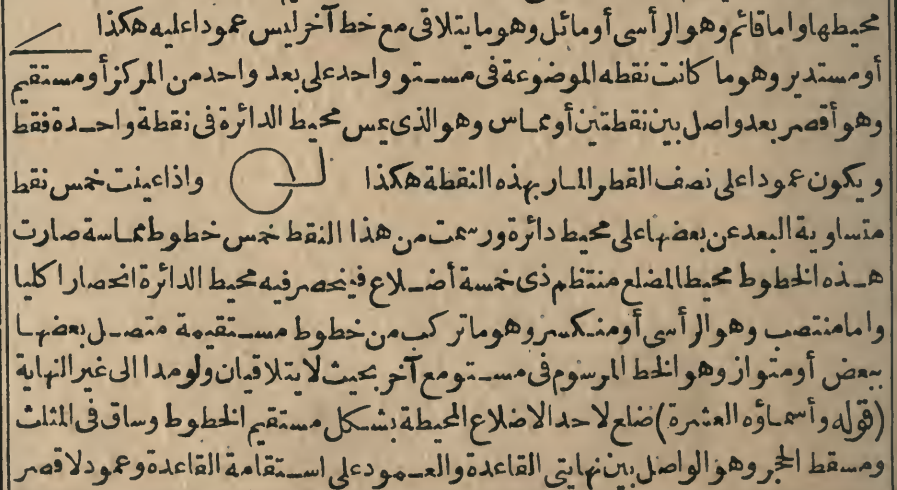 محيطها واما قائم وهو الرأسى أو مائل وهو ما يتلاقى مع خط آخر ليس عمودا عليه هكذا
أو مستدير وهو ما كانت نقطه الموضوعة فى مستو واحد على بعد واحد من المركز أو مستقيم
وهو أقصر بعد واصل بين نقطتين أو مماس وهو الذى يمس محيط الدائرة فى نقطة واحدة فقط
ويكون عمودا على نصف القطر المار بهذه النقطة هكذا واذا عينت خمس نقط
متساوية البعد عن بعضها على محيط دائرة ورسمت من هذا النقط خمس خطوط مماسة صارت
هذه الخطوط محيطا لمضلع منتظم ذى خمسة أضلاع فينحصر فيه محيط الدائرة انحصارا كليا
واما منتصب وهو الرأسى أو منكسر وهو ما تركب من خطوط مستقيمة متصل بعضها
ببعض أو متواز وهو الخط المرسوم فى مستو مع آخر بحيث لا يتلاقيان ولو مدا الى غير النهاية
(قوله وأسماؤه العشرة) ضلع لاحد الاضلاع المحيطة بشكل مستقيم الخطوط وساق فى المثلث
ومسقط الحجر وهو الواصل بين نهايتى القاعدة والعمود على استقامة القاعدة وعمود لاقصر